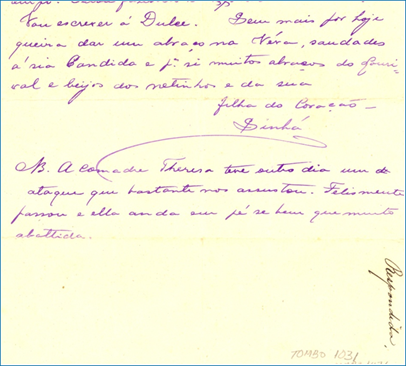 Vou escrever á Dulce. Sem mais por hoje
queira dar um abraço na Véra, saudades
á sia Candida e pª si muitos abraços do
val e beijos dos netinhos e da sua
filha do Coração –
Sinhá
NB. A comadre Thereza teve outro dia um
ataque que bastante nos assustou. Felismente
passou e ella anda em pé se bem que muito
abattida.
Respondida.
TOMBO 1031